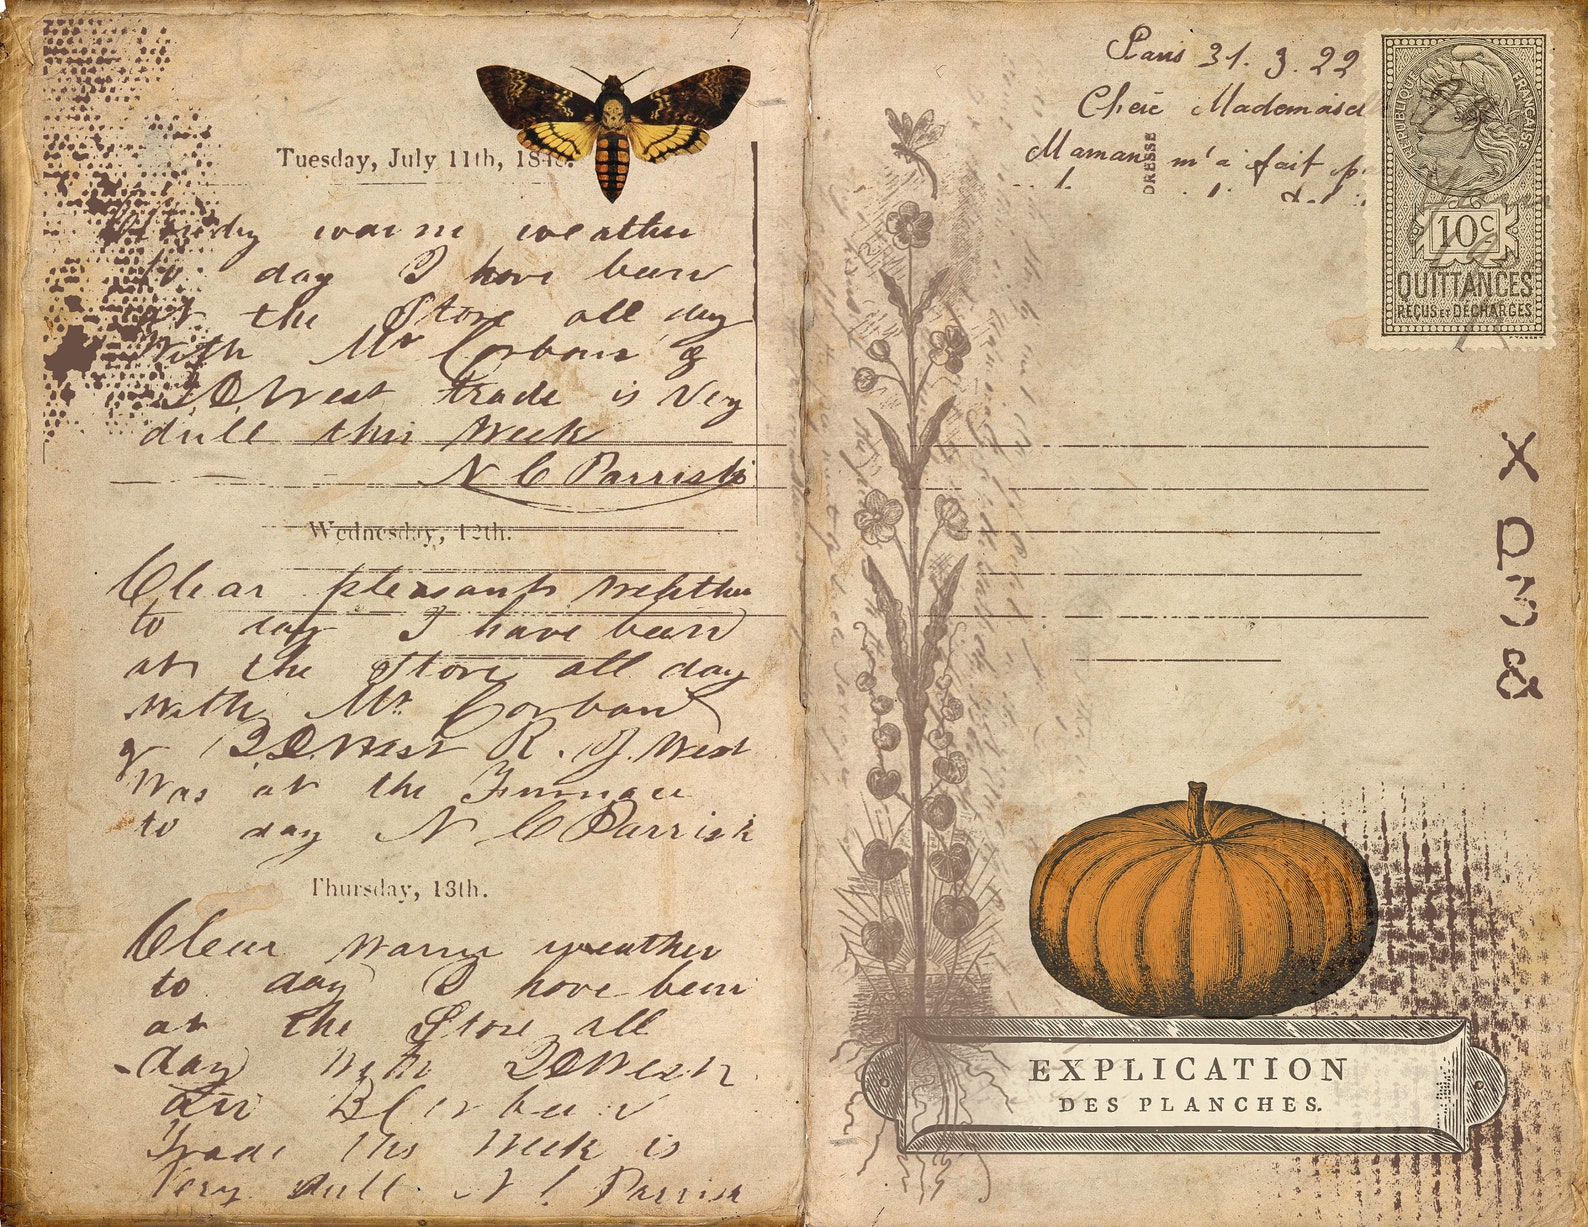 Tuesday, July 11th, 1848.
warm weather
to day I have been
at the Store all day
With Mr Corban &
T.D. West trade is Very
dull this Week
N C Parrish
Wednesday, 12th.
Clear pleasant Weather
to day I have been
at the Store all day
with Mr. Corban
& T.D. West R. J. West
Was at the Furnace
to day N C Parrish
Thursday, 13th.
Clear Warm weather
to day I have been
at the Store all
day With T D West
Trade this Week is
Very dull N C Parrish
Paris 31. 3. 22
Chère Mademoisel
Maman m'a fait
DRESSE
REPUBLIQUE FRANÇAISE
10c
QUITTANCES
REÇUS ET DÉCHARGES
X
P
3
&
EXPLICATION
DES PLANCHES.